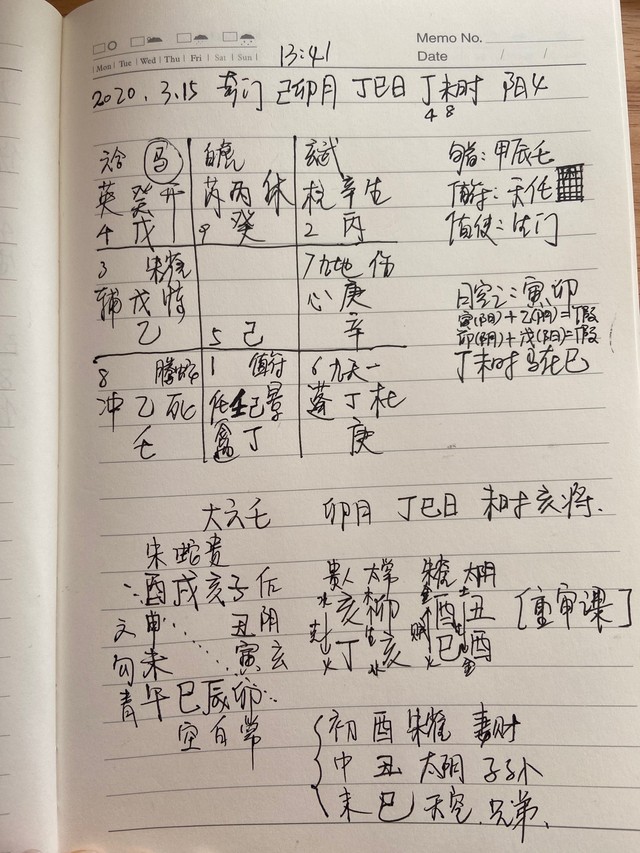 Memo No.
Mon Tue Wed Thu Fri Sat Sun
Date / /
13:41
2020.3.15 奇门 己卯月 丁巳日 丁未时 阳4
4 8
六合 马 白虎 玄武
英 癸 开 芮 丙 休 柱 辛 生
4 戊 9 癸 2 丙
旬首:甲辰壬
值符:天任
值使:生门
3 朱雀 7 九地 伤
辅 戊 惊 心 庚
乙 5 己 辛
日空亡:寅、卯
寅(阳)+乙(阴)=假
卯(阴)+戊(阳)=假
丁未时 马在巳
8 腾蛇 1 值符 6 九天
冲 乙 死 任 壬己 景 蓬 丁 杜
壬 禽 丁 庚
大六壬 卯月 丁巳日 未时亥将.
朱 蛇 贵
酉 戌 亥 子 后
申 丑 阴
勾 未 寅 玄
青 午 巳 辰 卯
空 白 常
贵人 太常 朱雀 太阴
水 木 金 土
亥 卯 酉 丑
丁 亥 巳 酉
火 水 火 金
[重审课]
初 酉 朱雀 妻财
中 丑 太阴 子孙
末 巳 天空 兄弟.